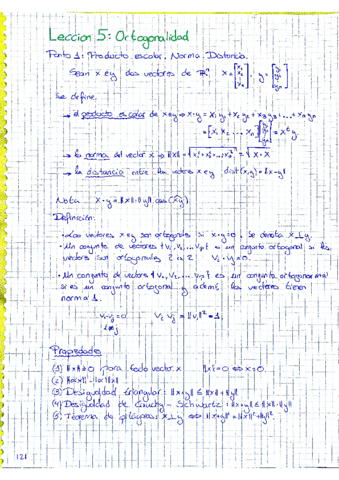 Leccion 5: Ortogonalidad
Punto 1: Producto escolar. Norma. Distancia.
Sean x e y dos vectores de ℝⁿ, x = [x₁ x₂ ⋮ xₙ], y = [y₁ y₂ ⋮ yₙ]
Se define
→ el producto escolar de x e y → x·y = x₁y₁ + x₂y₂ + x₃y₃ + ... + xₙyₙ
= [x₁ x₂ ... xₙ] [y₁ y₂ ⋮ yₙ] = xᵗy
→ la norma del vector x → ‖x‖ = √(x₁² + x₂² + ... + xₙ²) = √(x·x)
→ la distancia entre los vectores x e y dist(x,y) = ‖x-y‖
Nota x·y = ‖x‖·‖y‖ cos(x̂y)
Definición:
• Los vectores x e y son ortogonales si x·y = 0, se denota x⊥y.
• Un conjunto de vectores {v₁, v₂, ... vp} es un conjunto ortogonal si los
vectores son ortogonales 2 a 2 vᵢ·vⱼ = 0.
• Un conjunto de vectores {v₁, v₂, ... vp} es un conjunto ortonormal
si es un conjunto ortogonal y además los vectores tienen
norma 1.
vᵢ·vⱼ = 0 vᵢ·vᵢ = ‖vᵢ‖² = 1.
i≠j
Propiedades
(1) ‖x‖ ≥ 0 para todo vector x ‖x‖ = 0 ⇔ x = 0.
(2) ‖αx‖ = |α|‖x‖
(3) Desigualdad triangular: ‖x+y‖ ≤ ‖x‖ + ‖y‖
(4) Desigualdad de Cauchy - Schwartz: ‖x·y‖ ≤ ‖x‖·‖y‖
(5) Teorema de pitágoras: x⊥y ⇔ ‖x+y‖² = ‖x‖² + ‖y‖².
121